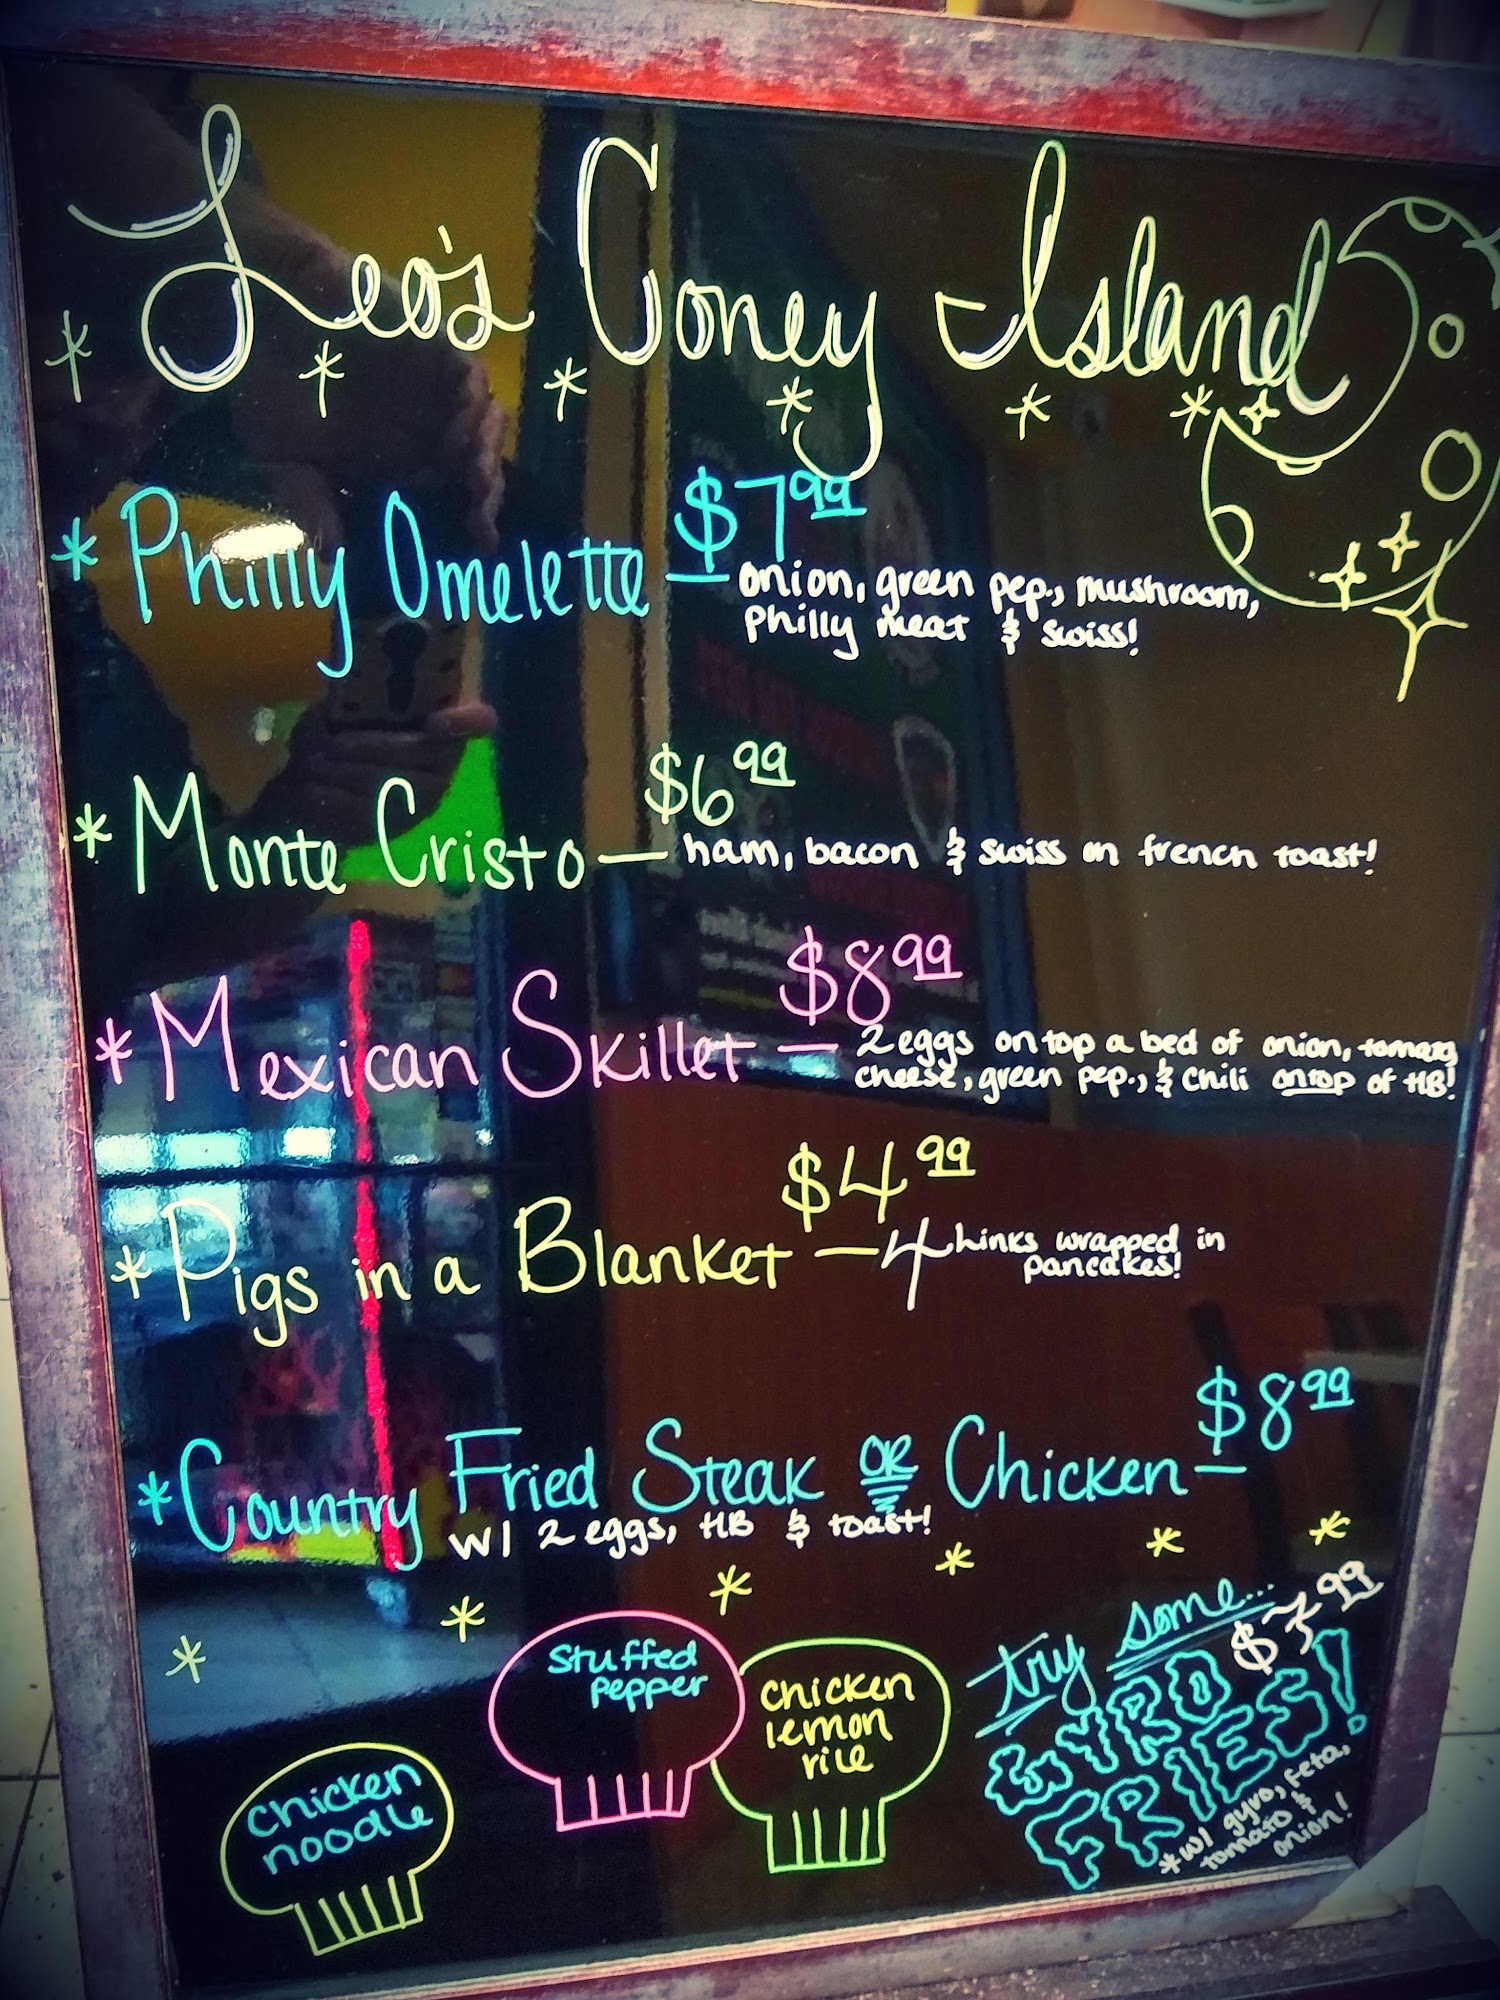 Leo's Coney Island
* Philly Omelette — $7.99
onion, green pep., mushroom,
philly meat & swiss!
* Monte Cristo — $6.99
ham, bacon & swiss on french toast!
* Mexican Skillet — $8.99
2 eggs on top a bed of onion, tomato,
cheese, green pep., & chili ontop of HB!
* Pigs in a Blanket — $4.99
4 Links wrapped in
pancakes!
* Country Fried Steak OR Chicken — $8.99
w/ 2 eggs, HB & toast!
chicken
noodle
Stuffed
pepper
chicken
lemon
rice
try some... $7.99
GYRO
FRIES!
*w/ gyro, feta,
tomato &
onion!